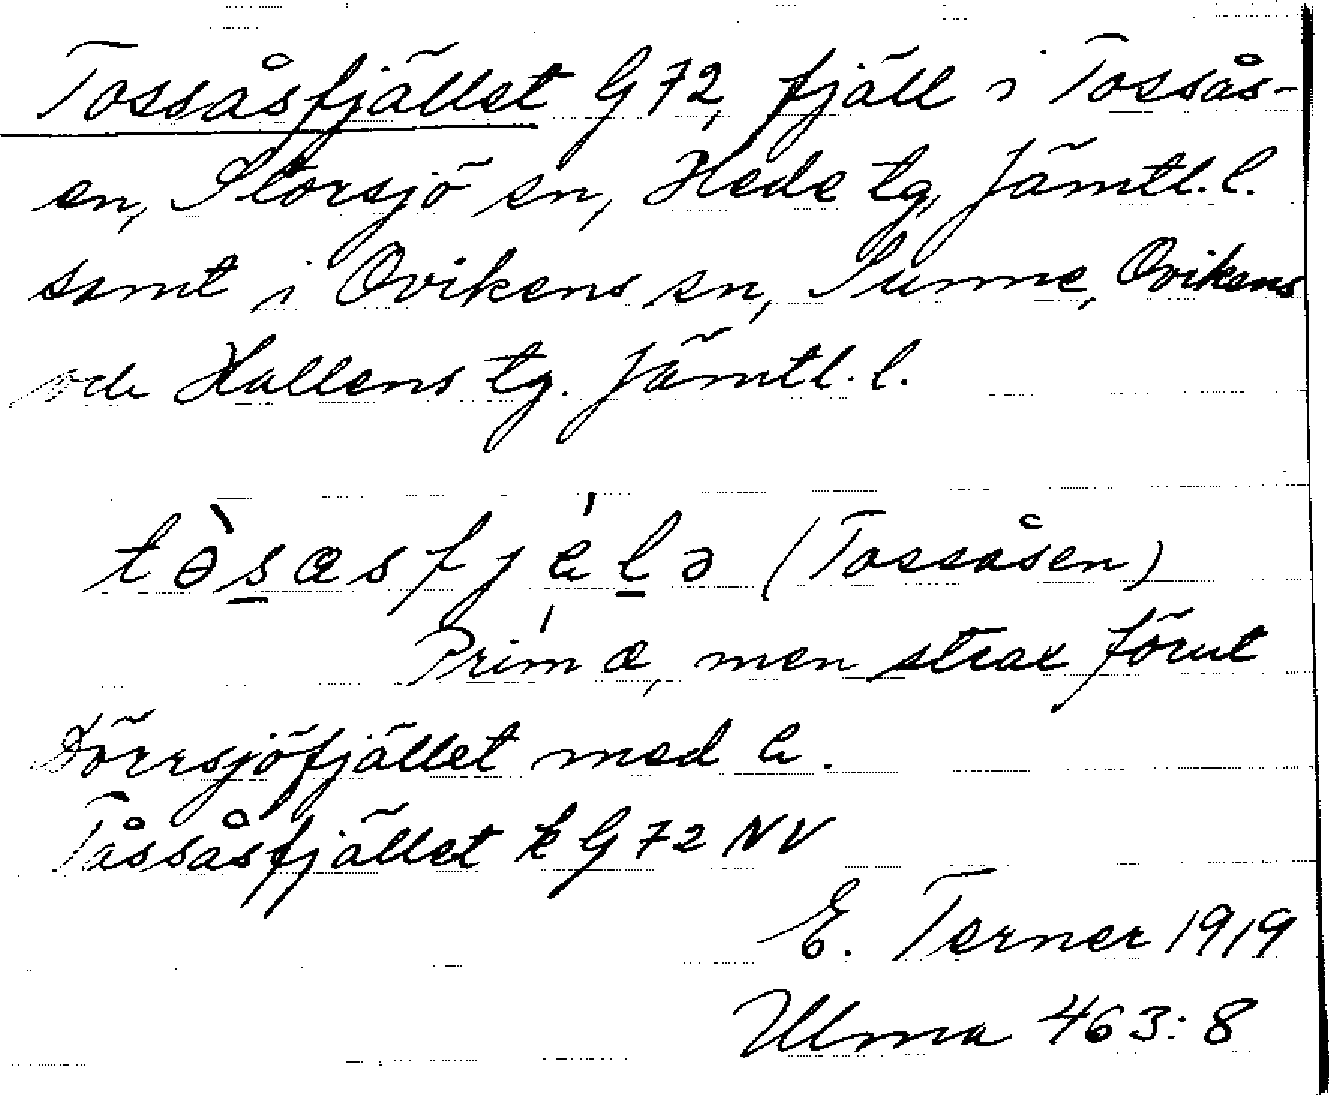 Tossåsfjället G 72, fjäll i Tossås-
en, Storsjö sn, Hede tg, Jämtl. l.
samt i Ovikens sn, Sunne, Ovikens
och Hallens tg. Jämtl. l.
tə̀sæsfjɐ́lə (Tossåsen)
Prim æ, men strax förut
Dörrsjöfjället med ɐ.
Tåssåsfjället k G 72 NV
E. Terner 1919
Ulma 463:8